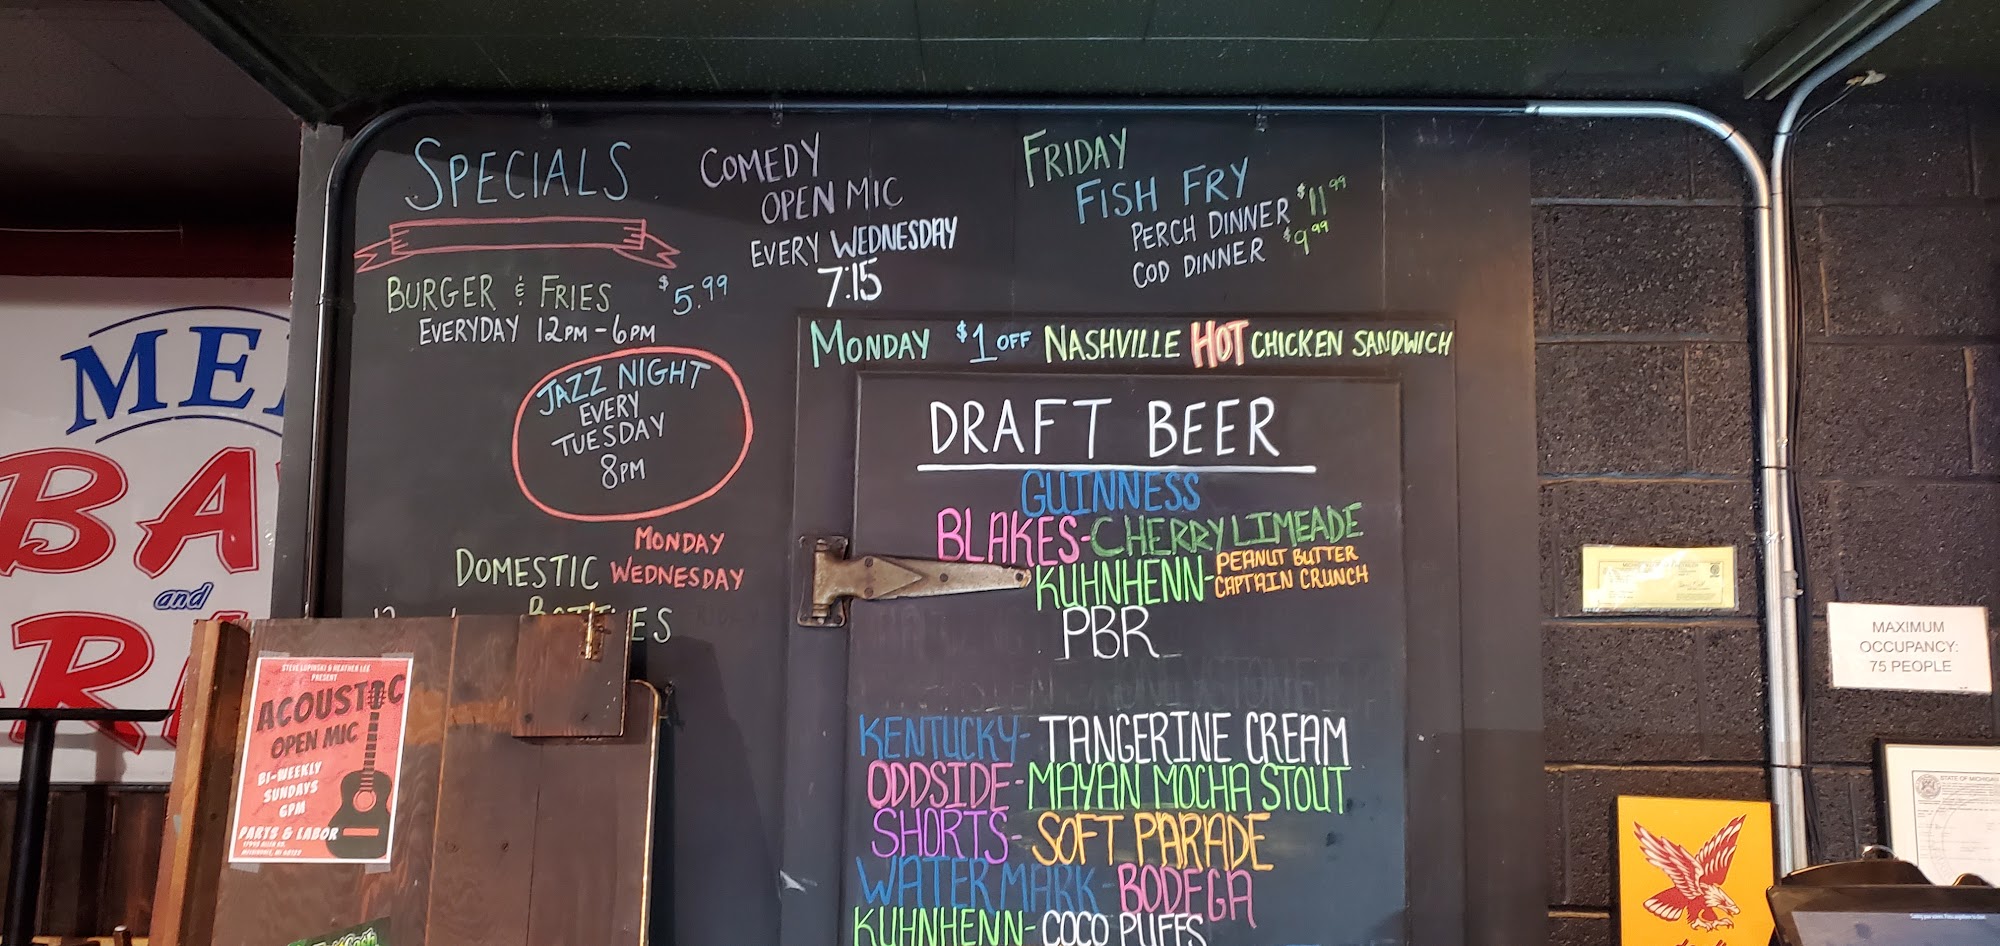 SPECIALS
BURGER & FRIES $5.99
EVERYDAY 12PM-6PM
JAZZ NIGHT
EVERY
TUESDAY
8PM
MONDAY
DOMESTIC WEDNESDAY
BOTTLES
COMEDY
OPEN MIC
EVERY WEDNESDAY
7:15
FRIDAY
FISH FRY
PERCH DINNER $11.99
COD DINNER $9.99
MONDAY $1 OFF NASHVILLE HOT CHICKEN SANDWICH
DRAFT BEER
GUINNESS
BLAKES-CHERRY LIMEADE
KUHNHENN-PEANUT BUTTER
CAPTAIN CRUNCH
PBR
KENTUCKY-TANGERINE CREAM
ODDSIDE-MAYAN MOCHA STOUT
SHORTS-SOFT PARADE
WATERMARK-BODEGA
KUHNHENN-COCO PUFFS
ME
BA
and
STEVE LUPINSKI & HEATHER LEE
PRESENT
ACOUSTIC
OPEN MIC
BI-WEEKLY
SUNDAYS
6PM
PARTS & LABOR
MAXIMUM
OCCUPANCY:
75 PEOPLE
STATE OF MICHIGAN